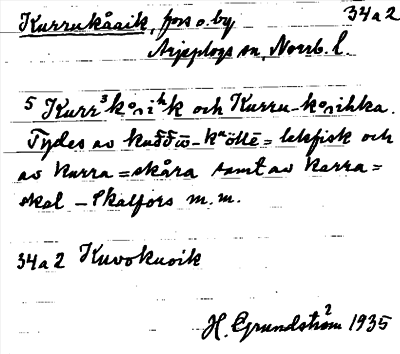 Kurrukåaik, fors o. by 34a2
Arjeplogs sn, Norrb. l.
5 Kurr³ko̱iʰk och Kurru-ko̱ihka.
Tydes av - = lekfisk och
av kurra = skåra samt av karra =
skal - Skalfors m.m.
34a2 Kuvokuoik
H. Grundström 1935